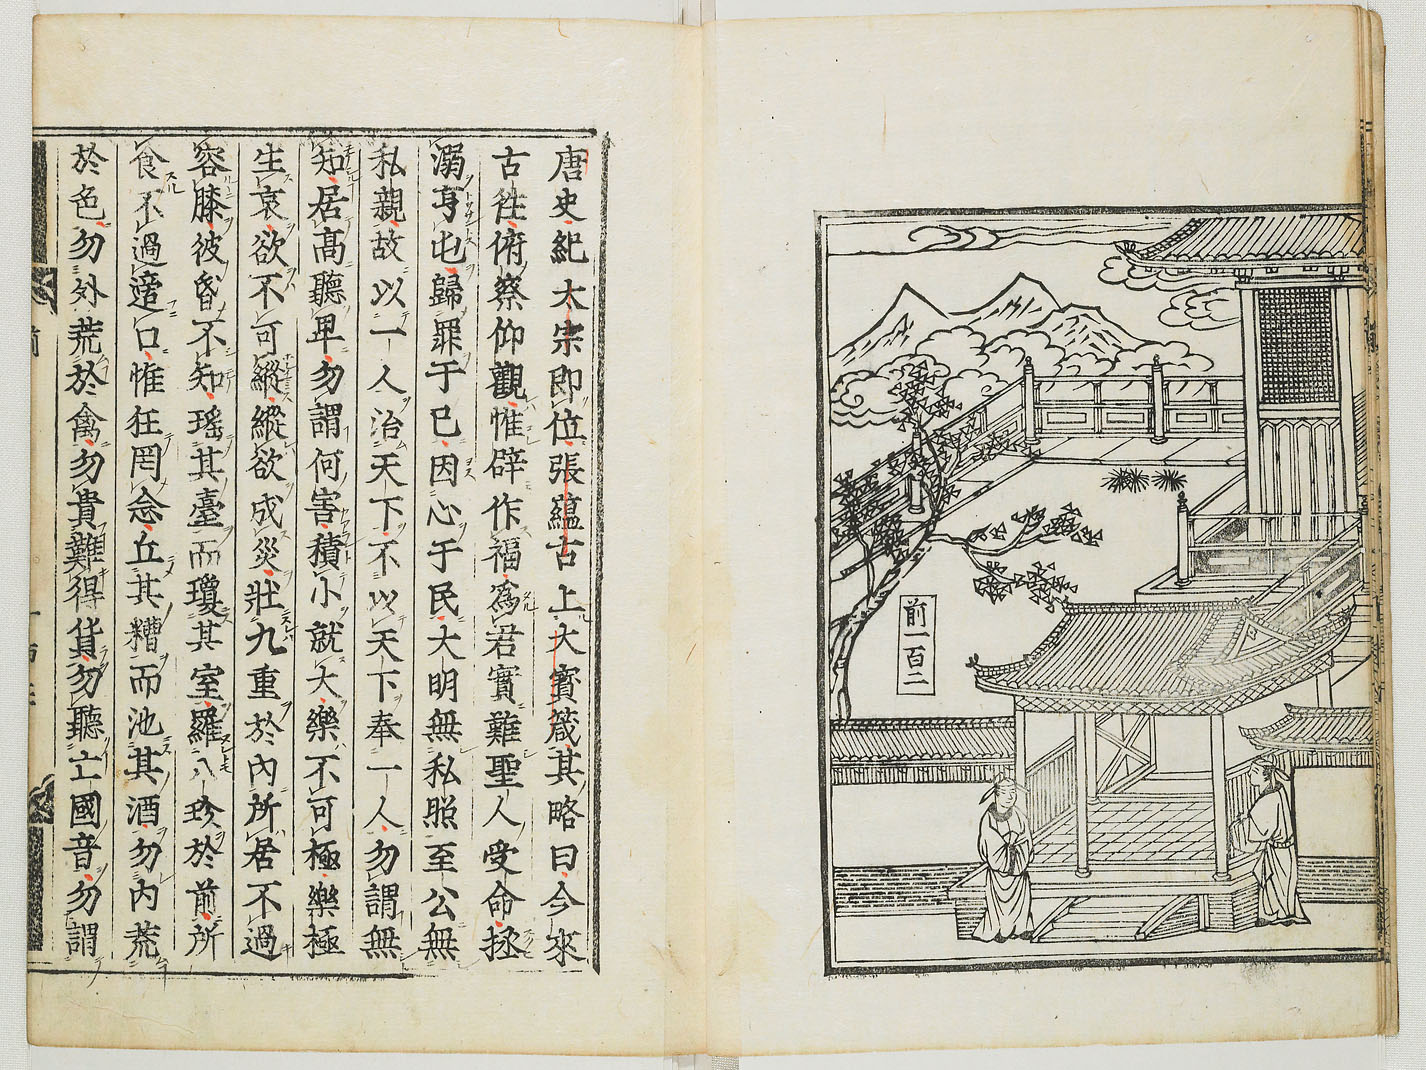 前一百二
唐史紀太宗即位張蘊古上大寳箴其略曰今來
古徃俯察仰觀惟辟作福爲君實難聖人受命拯
溺亨屯歸罪于已因心于民大明無私照至公無
私親故以一人治天下不以天下奉一人勿謂無
知居高聽卑勿謂何害積小就大樂不可極樂極
生哀欲不可縱縱欲成災壯九重於內所居不過
容膝彼昏不知瑤其臺而瓊其室羅八珍於前所
食不過適口惟狂罔念丘其糟而池其酒勿内荒
於色勿外荒於禽勿貴難得貨勿聽亡國音勿謂